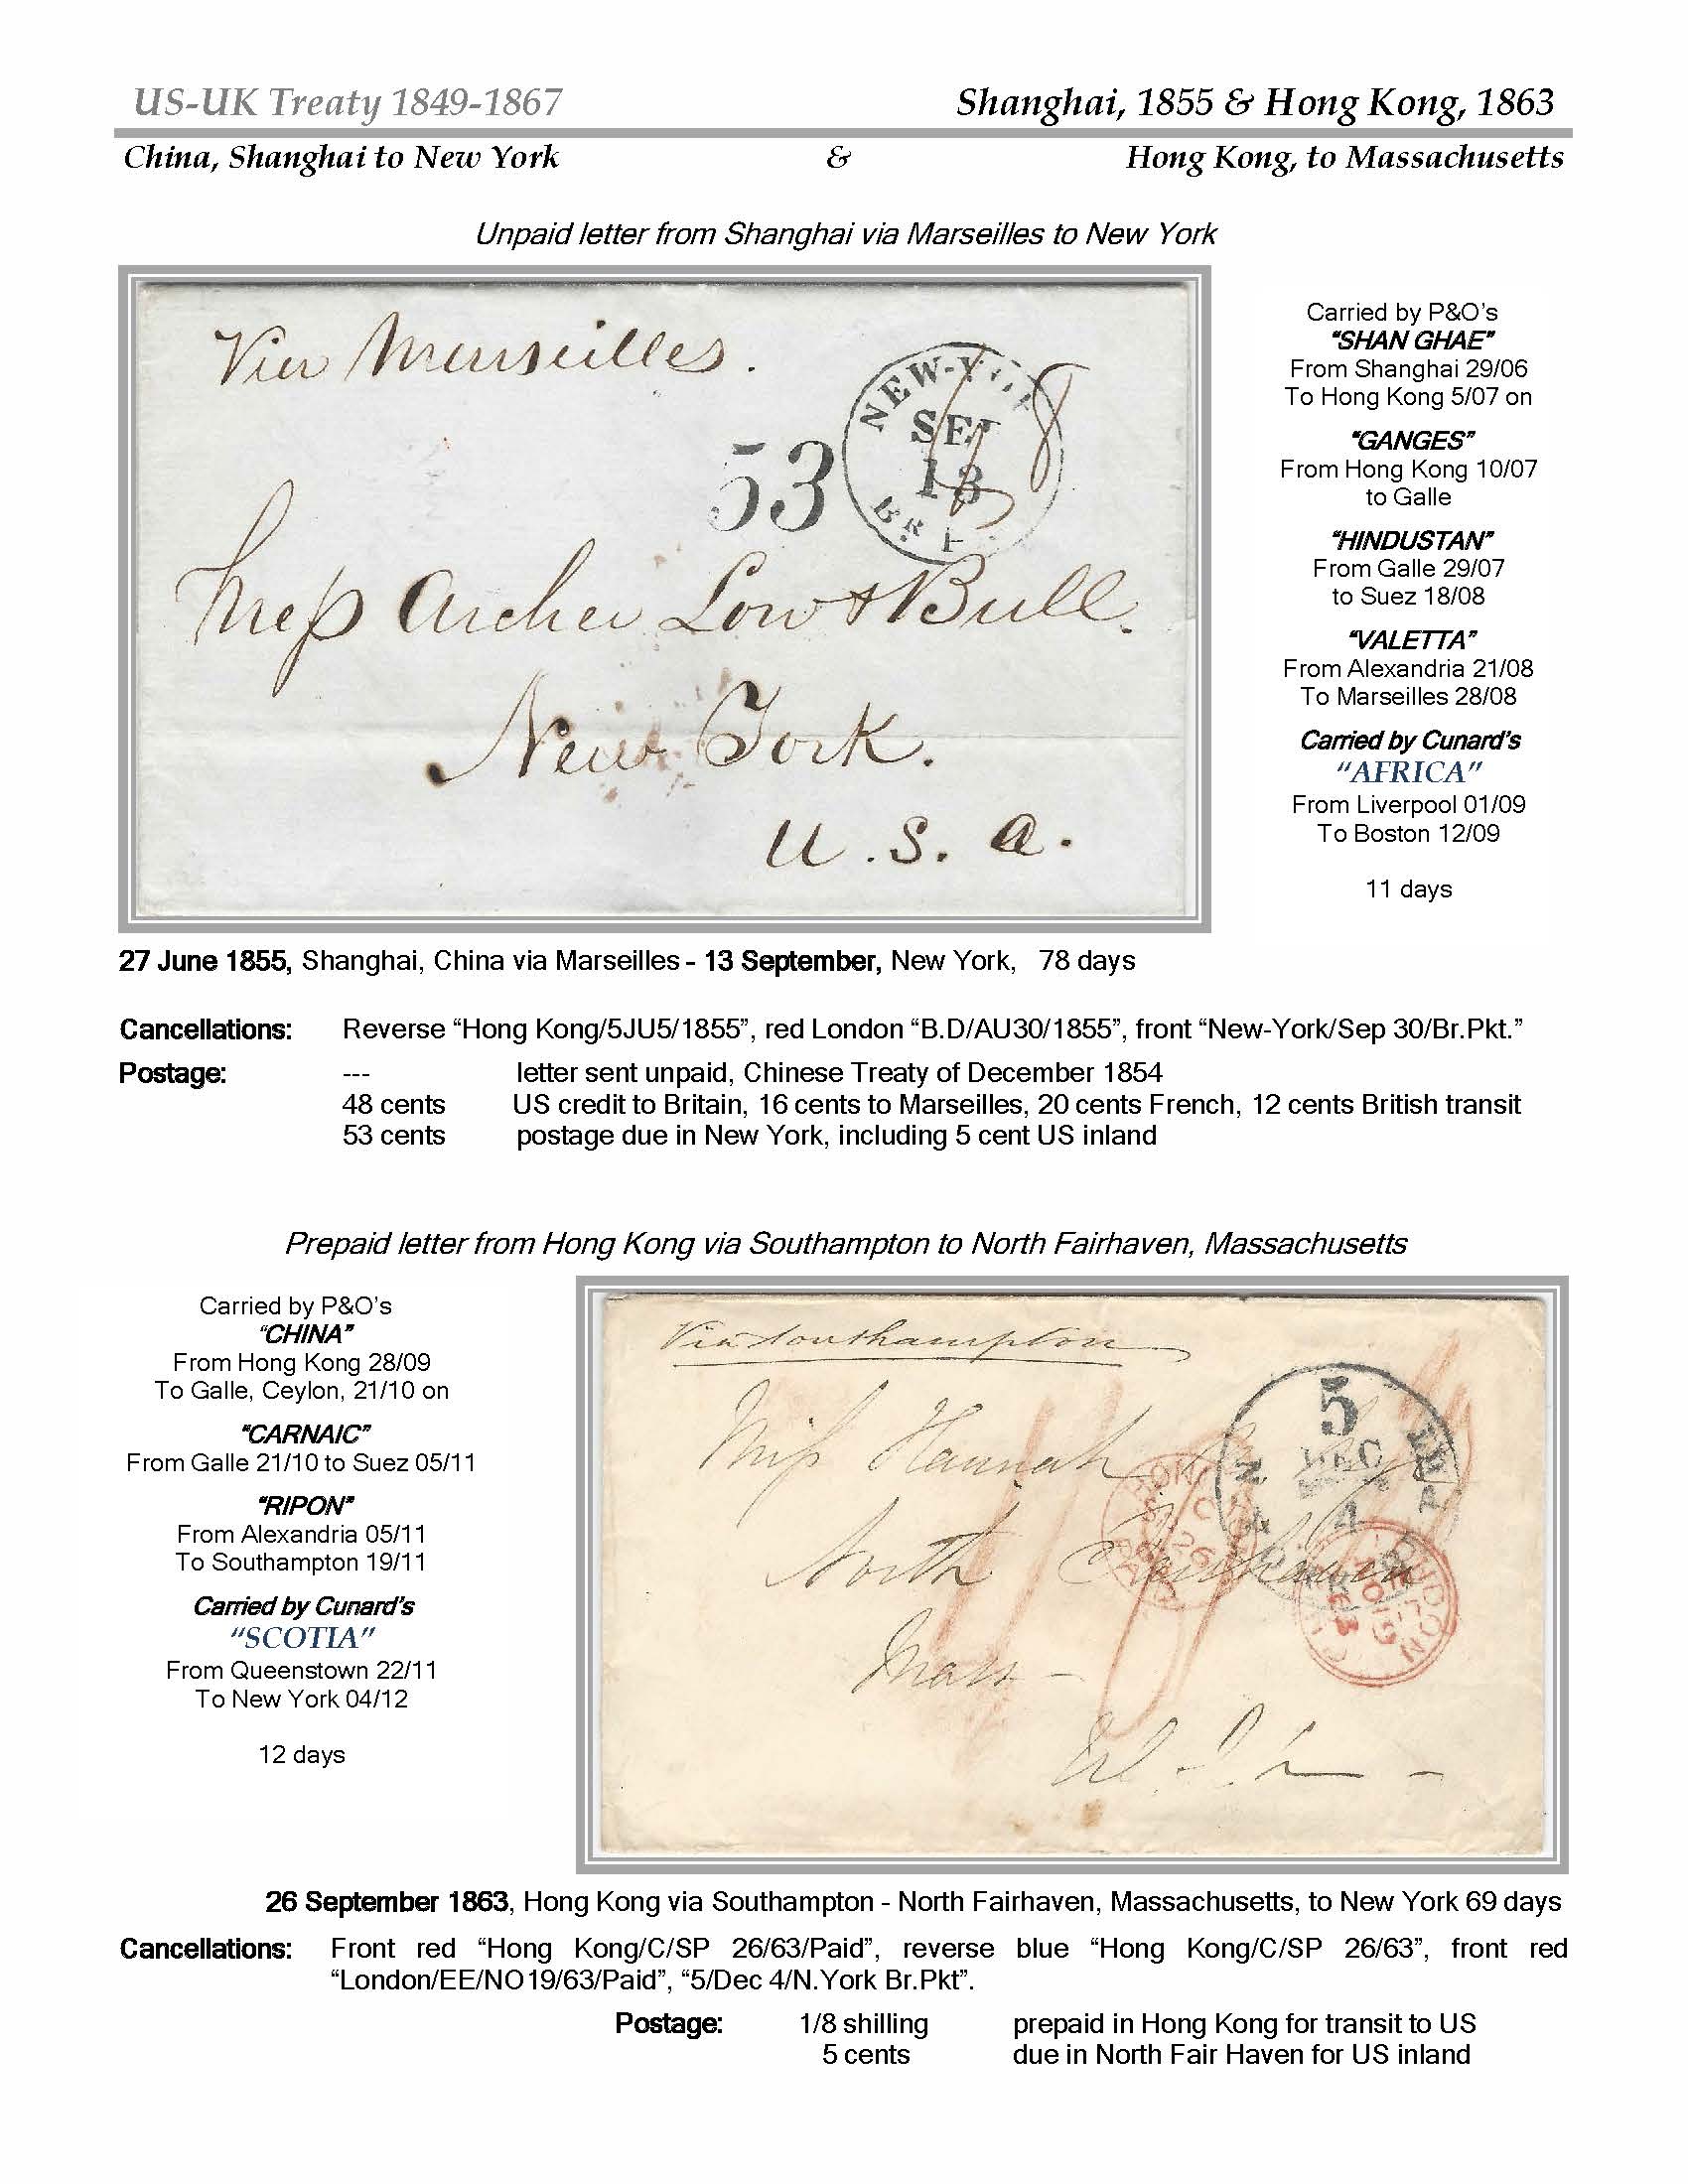 US-UK Treaty 1849-1867
Shanghai, 1855 & Hong Kong, 1863
China, Shanghai to New York & Hong Kong, to Massachusetts
Unpaid letter from Shanghai via Marseilles to New York
Via Marseilles.
NEW-YORK
SEP
13
BR. PKT
53
Mess Archer Low & Bull.
New York.
U.S.A.
Carried by P&O's
"SHAN GHAE"
From Shanghai 29/06
To Hong Kong 5/07 on
"GANGES"
From Hong Kong 10/07
to Galle
"HINDUSTAN"
From Galle 29/07
to Suez 18/08
"VALETTA"
From Alexandria 21/08
To Marseilles 28/08
Carried by Cunard's
"AFRICA"
From Liverpool 01/09
To Boston 12/09
11 days
27 June 1855, Shanghai, China via Marseilles - 13 September, New York, 78 days
Cancellations: Reverse "Hong Kong/5JU5/1855", red London "B.D/AU30/1855", front "New-York/Sep 30/Br.Pkt."
Postage: --- letter sent unpaid, Chinese Treaty of December 1854
48 cents US credit to Britain, 16 cents to Marseilles, 20 cents French, 12 cents British transit
53 cents postage due in New York, including 5 cent US inland
Prepaid letter from Hong Kong via Southampton to North Fairhaven, Massachusetts
Carried by P&O's
"CHINA"
From Hong Kong 28/09
To Galle, Ceylon, 21/10 on
"CARNAIC"
From Galle 21/10 to Suez 05/11
"RIPON"
From Alexandria 05/11
To Southampton 19/11
Carried by Cunard's
"SCOTIA"
From Queenstown 22/11
To New York 04/12
12 days
Via Southampton
5
DEC
4
Miss Hannah
North Fairhaven
Mass
LONDON
26 September 1863, Hong Kong via Southampton - North Fairhaven, Massachusetts, to New York 69 days
Cancellations: Front red "Hong Kong/C/SP 26/63/Paid", reverse blue "Hong Kong/C/SP 26/63", front red
"London/EE/NO19/63/Paid", "5/Dec 4/N.York Br.Pkt".
Postage: 1/8 shilling prepaid in Hong Kong for transit to US
5 cents due in North Fair Haven for US inland